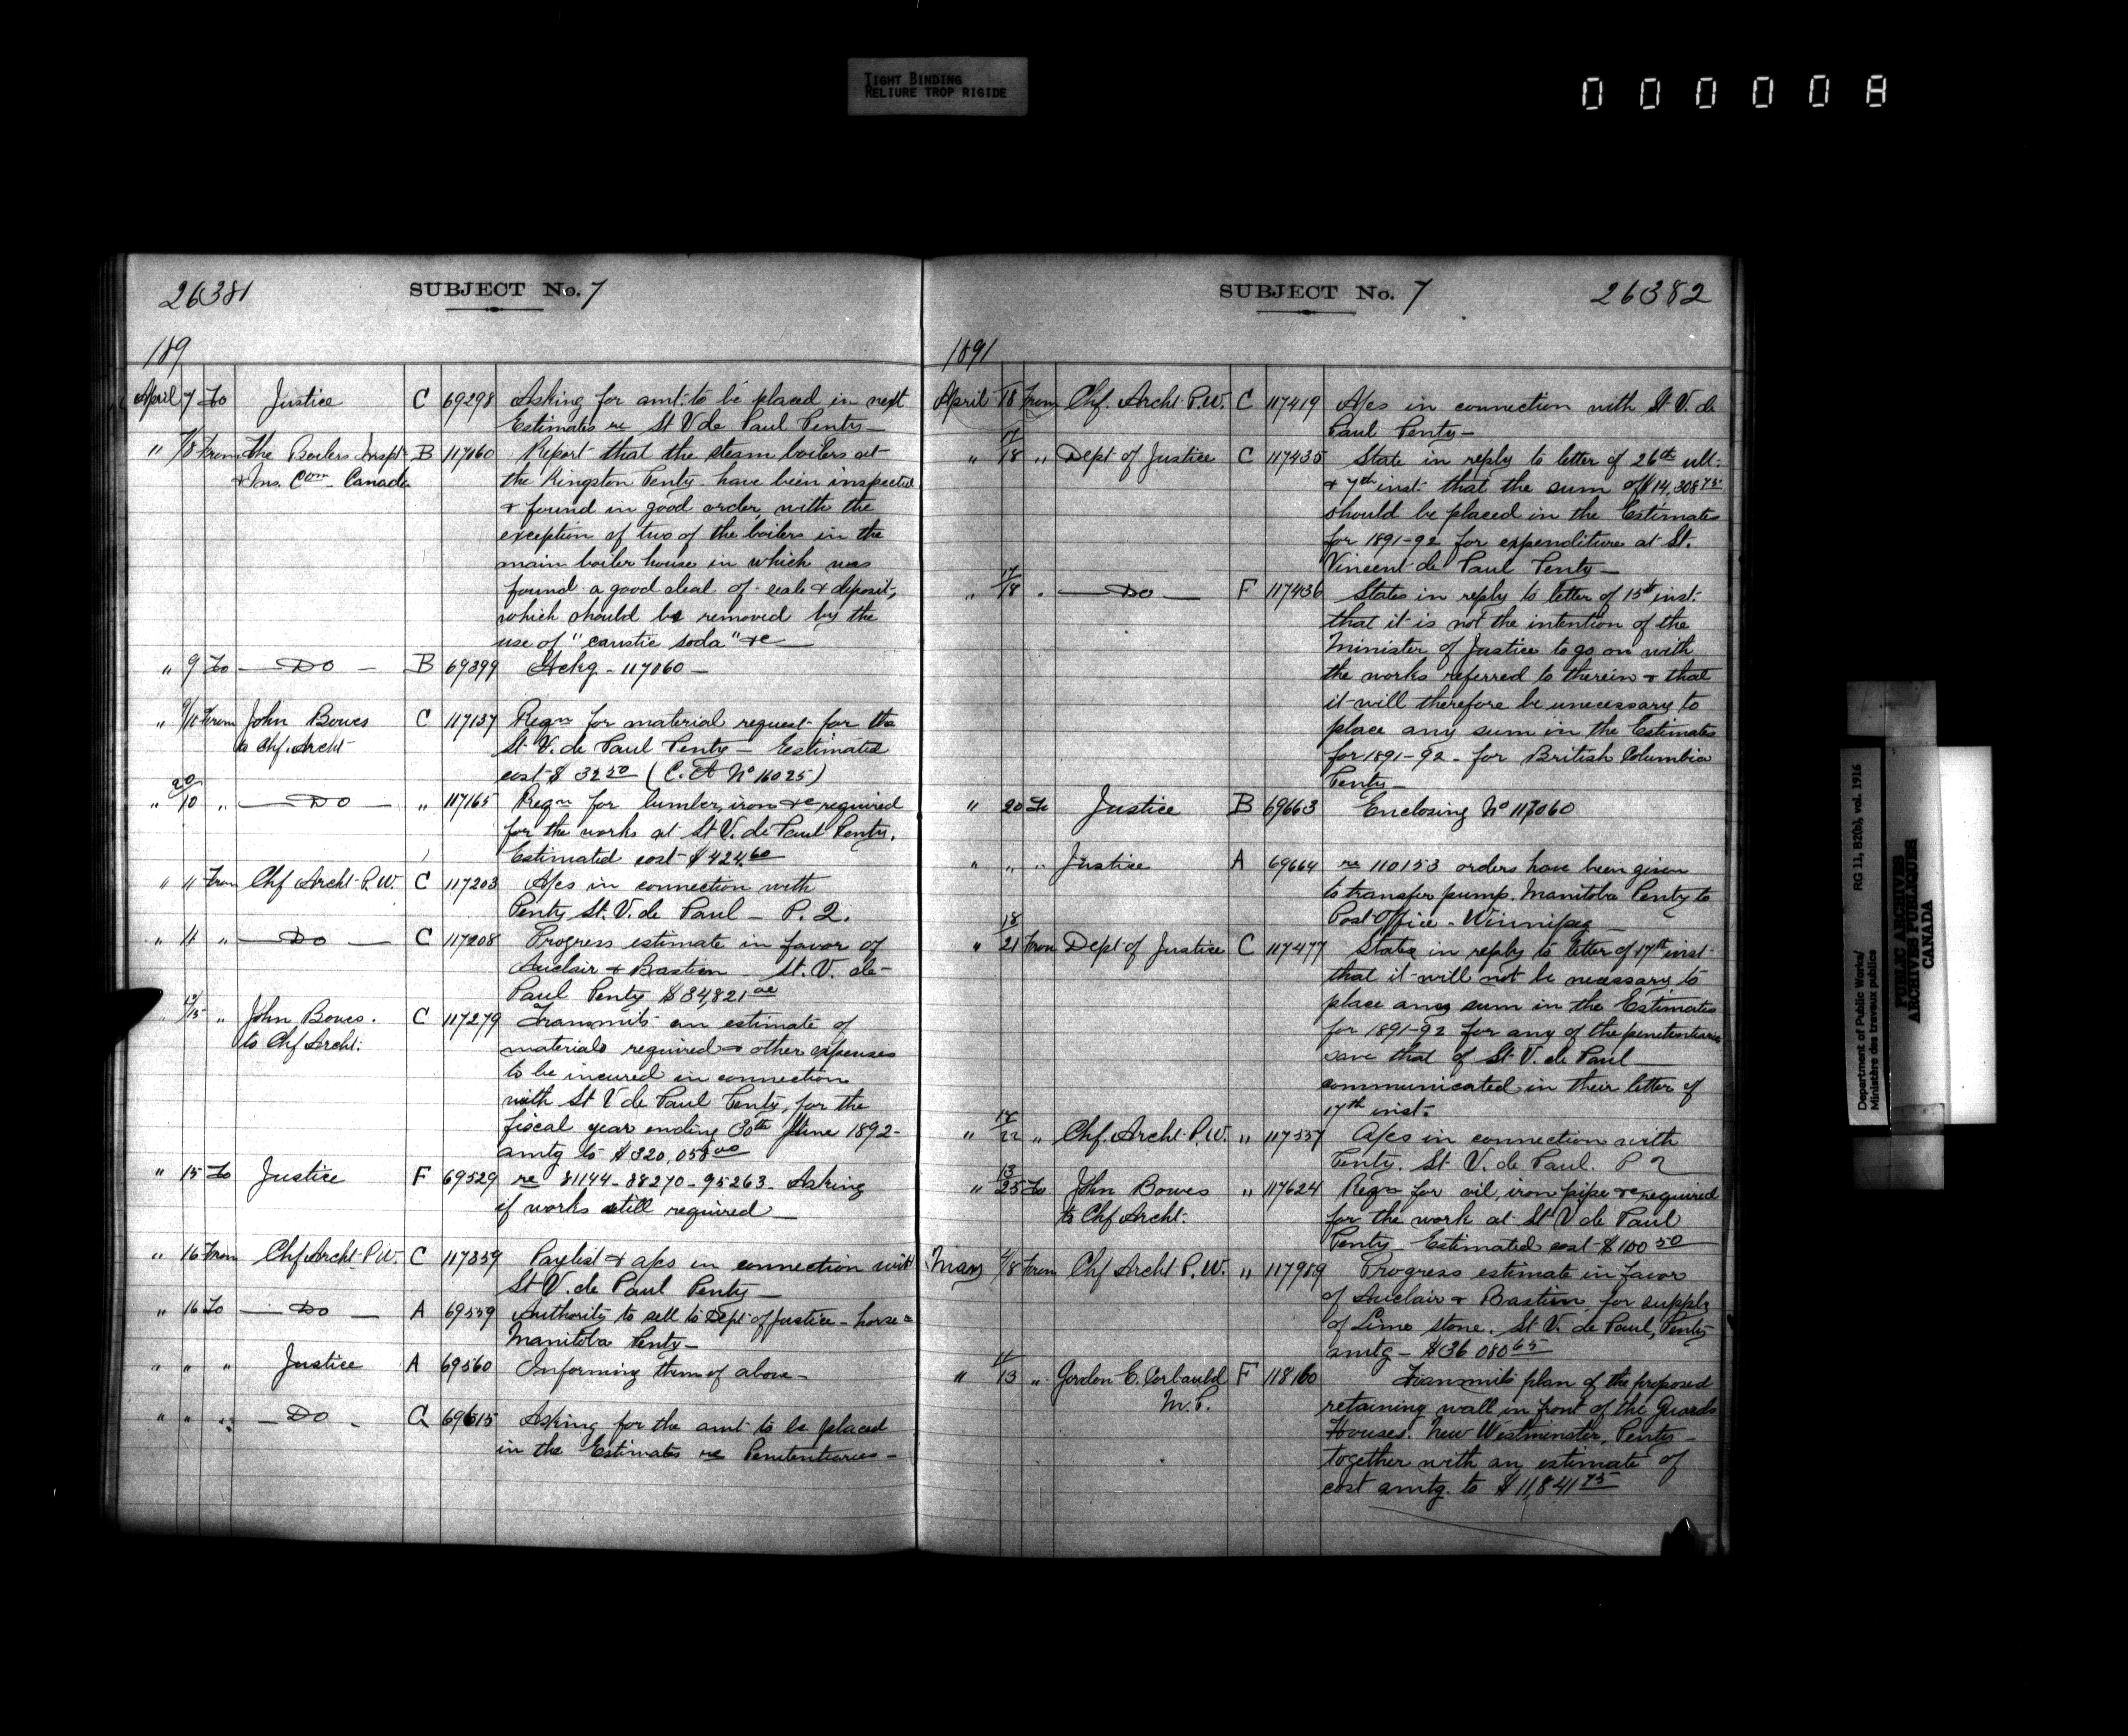 TIGHT BINDING
RELIURE TROP RIGIDE
000008
26381
SUBJECT No. 7
189
April 7 To Justice C 69298 Asking for amt. to be placed in next
Estimates re St V de Paul Penty—
" 7/8 From The Boilers Inspt B 117060 Report that the steam boilers at
& Ins. Com. Canada the Kingston Penty. have been inspected
& found in good order, with the
exception of two of the boilers in the
main boiler house in which was
found a good deal of scale & deposit,
which should be removed by the
use of "caustic soda" &c—
" 9 To — Do — B 69399 Ackg - 117060 —
" 9/10 From John Bowes C 117137 Reqn for material request for the
to Chf. Archt St. V. de Paul Penty — Estimated
cost $ 32 50 (C. A No 16025)
" 10 " — Do — " 117165 Reqn for lumber, iron &c required
for the works at St V. de Paul Penty.
Estimated cost $ 424.60
" 11 From Chf Archt P.W. C 117203 A/cs in connection with
Penty St. V. de Paul — P. Q.
" 11 " — Do — C 117208 Progress estimate in favor of
Auclair & Bastien — St. V. de-
Paul Penty $34,821 00
" 13/15 " John Bowes. C 117279 Transmits an estimate of
to Chf Archt: materials required & other expenses
to be incured in connection
with St V de Paul Penty, for the
fiscal year ending 30th June 1892-
amtg to $320,058 00
" 15 To Justice F 69529 re 81144 - 88270 - 95263 - Asking
if works still required —
" 16 From Chf Archt P.W. C 117359 Paylist & a/cs in connection with
St V. de Paul Penty —
" 16 To — Do — A 69559 Authority to sell to Dept of Justice - horse @
Manitoba Penty—
" " " Justice A 69560 Informing them of above -
" " " — Do - 69615 Asking for the amt to be placed
in the Estimates re Penitentiaries -
SUBJECT No. 7
26382
1891
April 18 From Chf. Archt P.W. C 117419 A/cs in connection with St V. de
Paul Penty —
" 17/18 " Dept of Justice C 117435 State in reply to letter of 26th ult:
& 7th inst. that the sum of $14,308 75
should be placed in the Estimates
for 1891-92 for expenditure at St.
Vincent de Paul Penty —
" 17/18 " — Do — F 117436 States in reply to letter of 15th inst:
that it is not the intention of the
Minister of Justice to go on with
the works referred to therein & that
it will therefore be unecessary to
place any sum in the Estimates
for 1891-92 - for British Columbia
Penty—
" 20 To Justice B 69663 Enclosing No 117060
" " " Justice A 69664 re 110153 orders have been given
to transfer pump. Manitoba Penty to
Post Office - Winnipeg —
" 18/21 From Dept of Justice C 117477 States in reply to letter of 17th inst
that it will not be necessary to
place any sum in the Estimates
for 1891-92 for any of the penitentiaries
save that of St. V. de Paul
communicated in their letter of
17th inst.
" 18/22 " Chf. Archt. P.W. " 117557 A/cs in connection with
Penty. St. V. de Paul. P Q
" 13/25 To John Bowes " 117624 Reqn for oil, iron pipe &c required
to Chf Archt. for the work at St V de Paul
Penty Estimated cost $100 50
May 4/8 From Chf Archt P.W. " 117989 Progress estimate in favor
of Auclair & Bastien for supply
of Lime stone. St V. de Paul, Penty
amtg — $36 080 65
" 11/13 " Gordon E. Corbauld F 118160 Transmits plan of the proposed
M.P. retaining wall in front of the Guards
Houses. New Westminster, Penty—
together with an estimate of
cost amtg. to $11,841 75
Department of Public Works/ RG 11, B2(b), vol. 1916
Ministère des travaux publics
PUBLIC ARCHIVES
ARCHIVES PUBLIQUES
CANADA